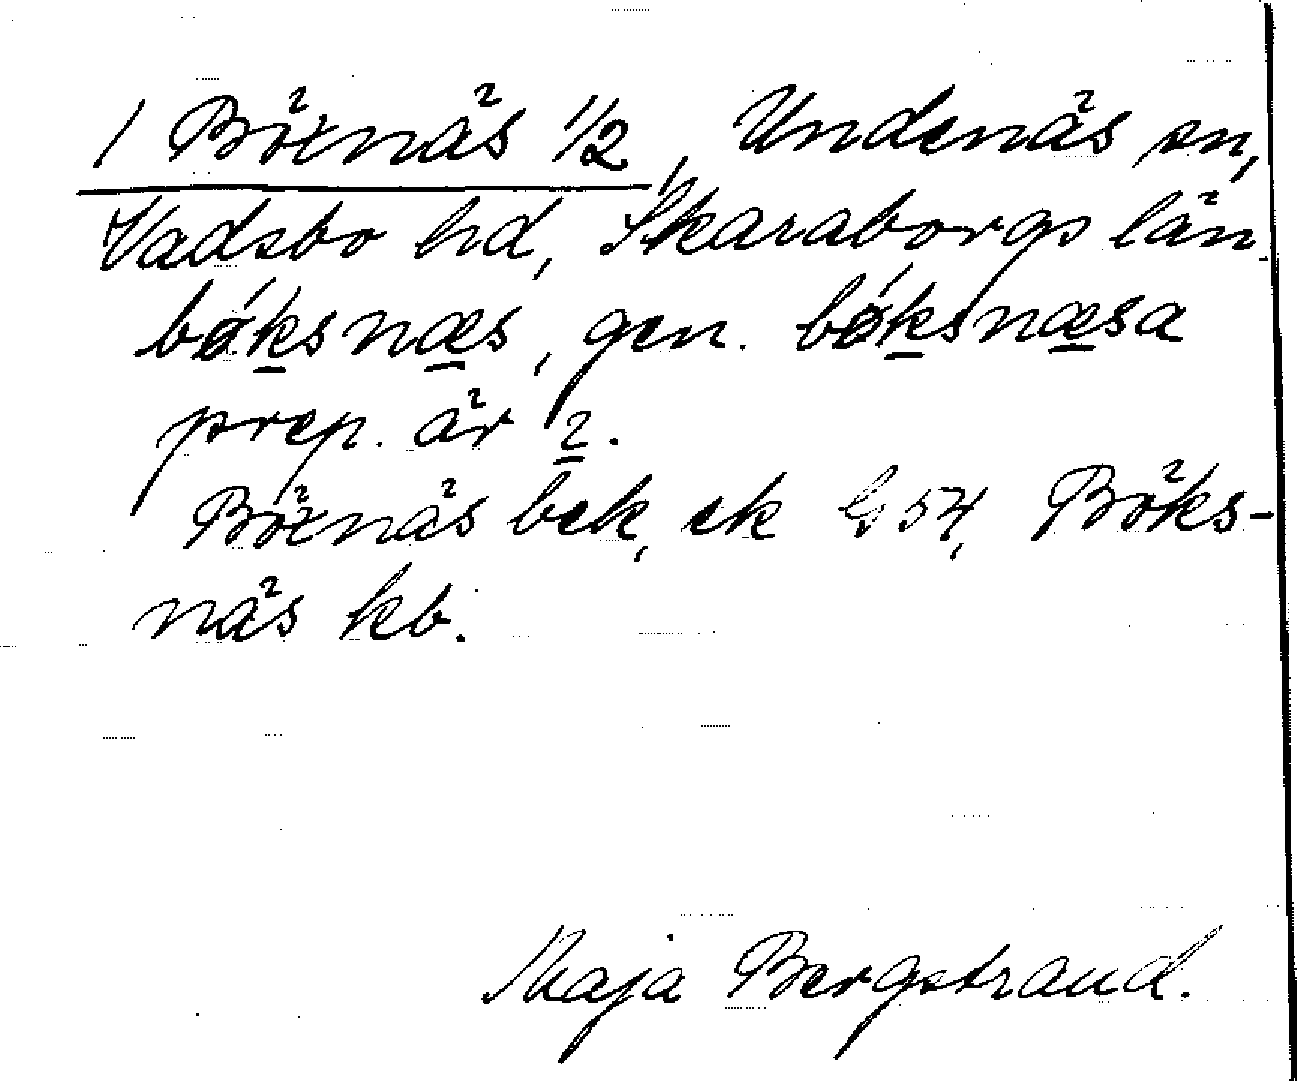 1 Böxnäs 1/2, Undenäs sn,
Vadsbo hd, Skaraborgs län.
bǿksnæs, gen. bǿksnæsa
prep. är 2.
Böxnäs bek, ek G 54, Böks-
näs kb.
Maja Bergstrand.